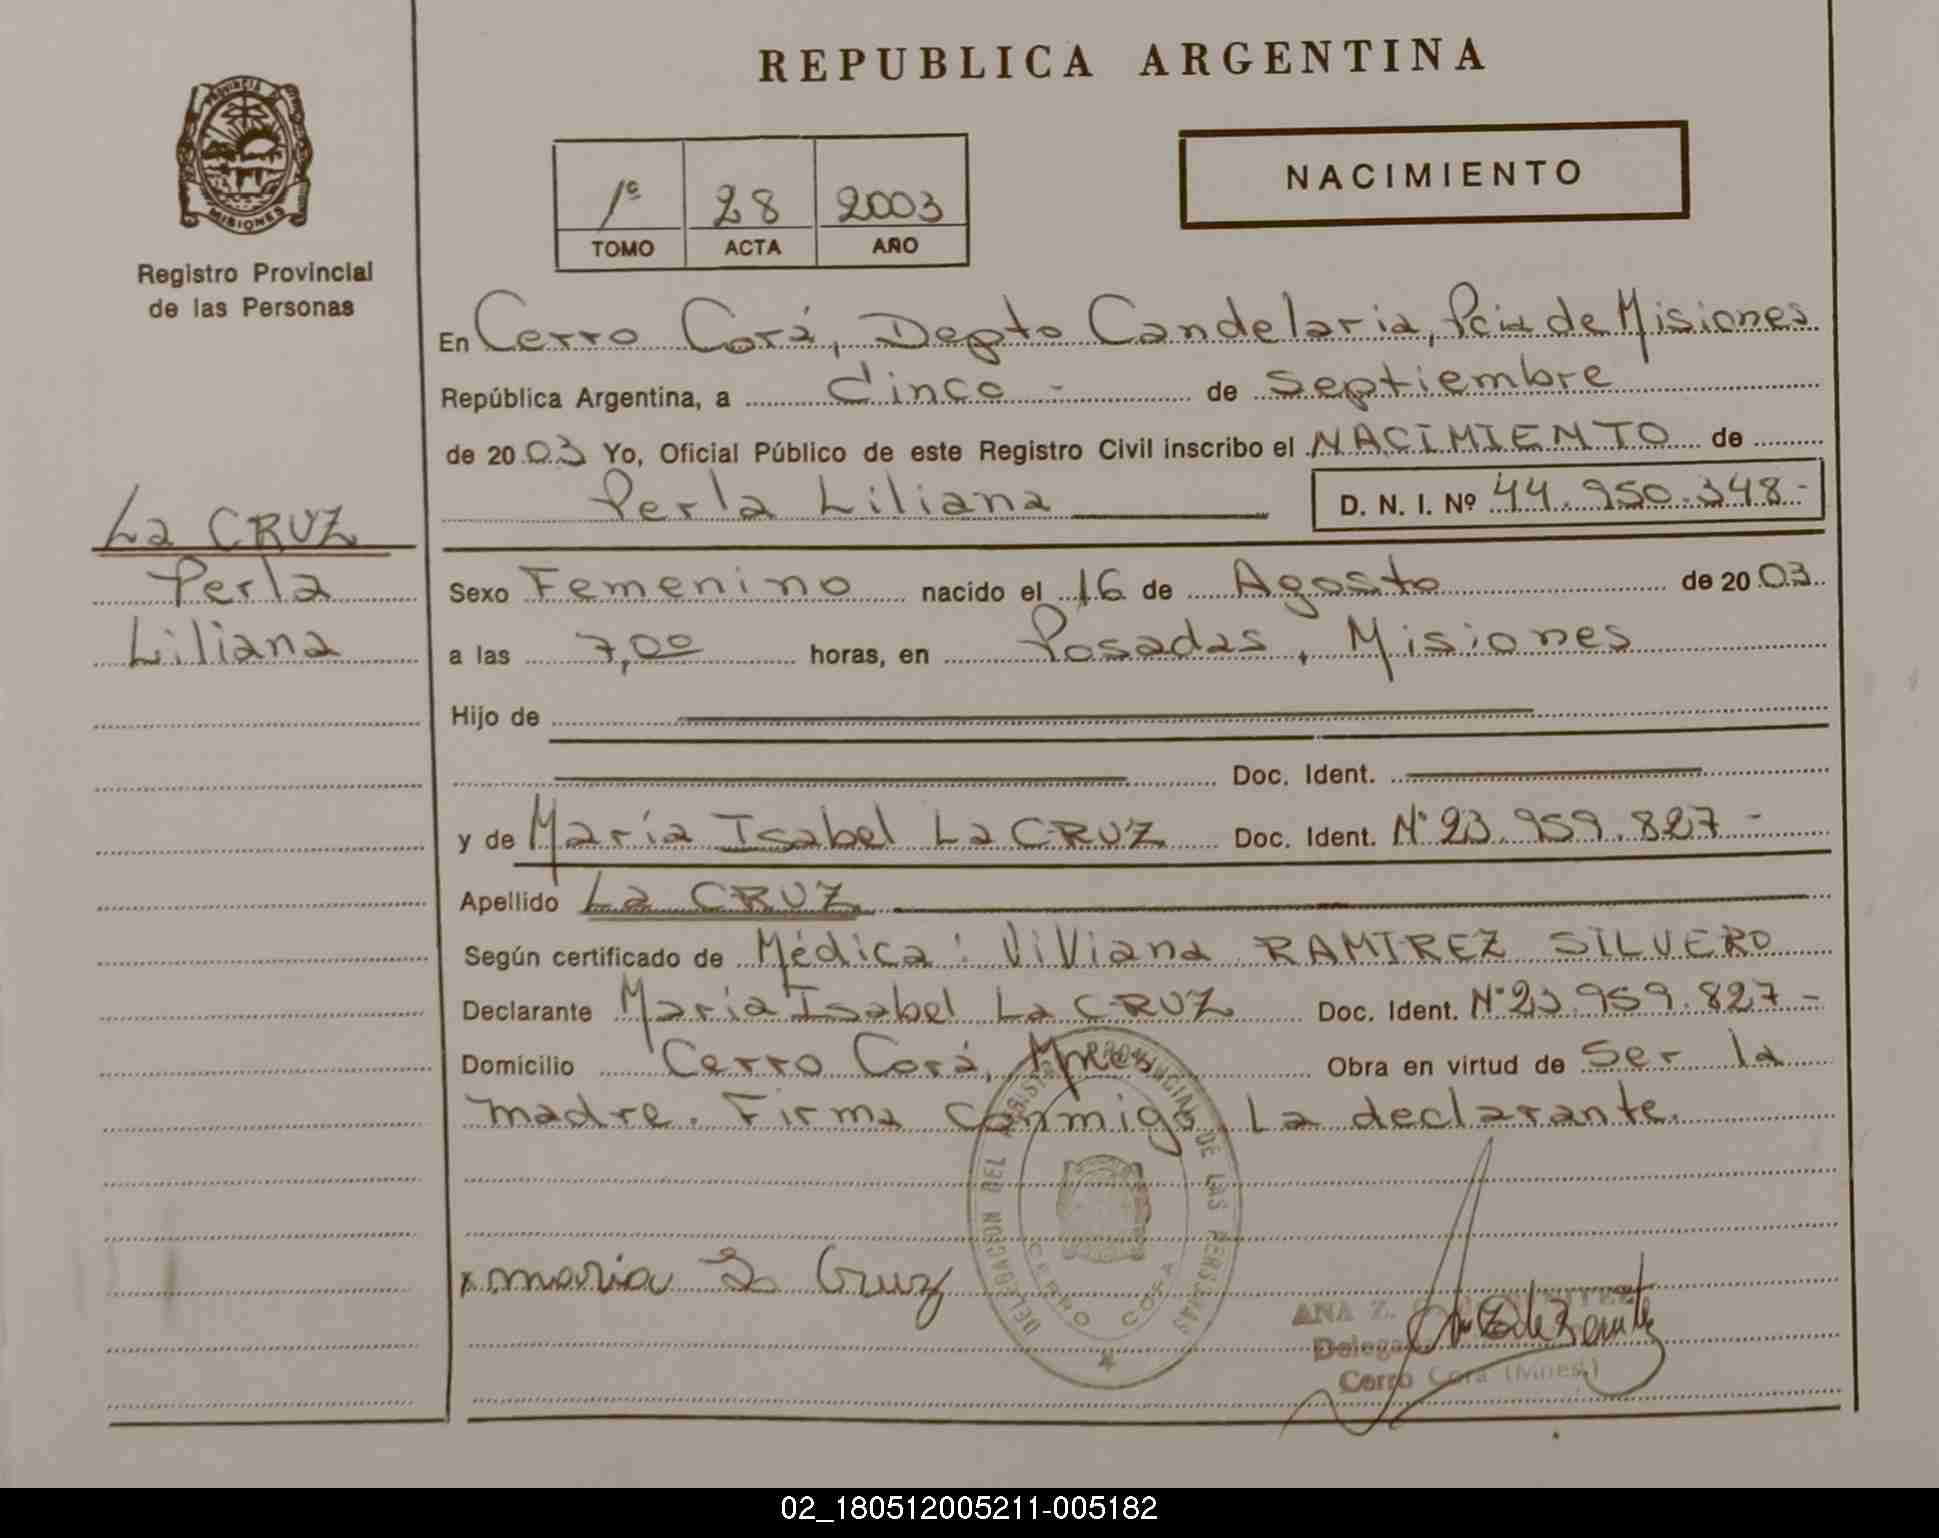 REPUBLICA ARGENTINA
PROVINCIA DE
MISIONES
Registro Provincial
de las Personas
1º 28 2003
TOMO ACTA AÑO
NACIMIENTO
En Cerro Corá, Depto Candelaria, Pcia de Misiones
República Argentina, a Cinco - de Septiembre
de 2003 Yo, Oficial Público de este Registro Civil inscribo el NACIMIENTO de
Perla Liliana D. N. I. Nº 44.950.348-
La CRUZ
Perla
Liliana
Sexo Femenino nacido el 16 de Agosto de 2003
a las 7,00 horas, en Posadas, Misiones
Hijo de
Doc. Ident.
y de María Isabel La CRUZ Doc. Ident. Nº 23.959.827-
Apellido La CRUZ
Según certificado de Médica: Viviana RAMIREZ SILVERO
Declarante María Isabel La CRUZ Doc. Ident. Nº 23.959.827-
Domicilio Cerro Corá, Mnes Obra en virtud de Ser la
madre. Firma conmigo La declarante.
DELEGACION DEL REGISTRO PROVINCIAL DE LAS PERSONAS
CERRO CORA
maria I Cruz
ANA Z.
Cerro Cora (Mnes.)
02_180512005211-005182